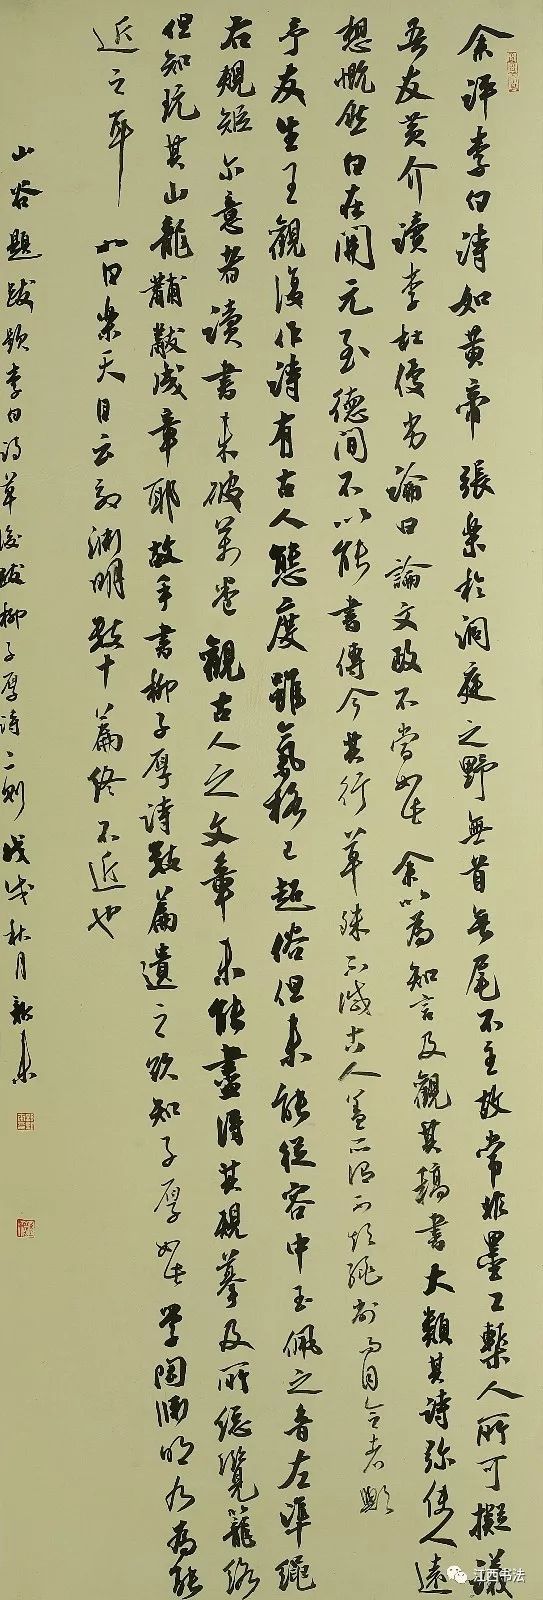 余評李白詩如黄帝張樂於洞庭之野無首無尾不主故常非墨工槧人所可擬議
吾友黄介讀李杜優劣論曰論文政不當如此余以為知言及觀其稿書大類其詩弥使人遠
想慨然白在開元至德間不以能書傳今其行草殊不減古人蓋所謂不煩繩削而自合者歟
予友生王觀復作詩有古人態度雖氣格已超俗但未能從容中玉佩之音左準繩
右規矩尔意者讀書未破萬卷觀古人之文章未能盡得其規摹及所總覽籠络
但知玩其山龍黼黻成章耶故手書柳子厚詩數篇遺之欲知子厚如此學陶淵明乃為能
近之耳 如白樂天自云效淵明數十篇終不近也
山谷題跋題李白詩草後跋柳子厚詩二則 戊戌秋月
江西书法